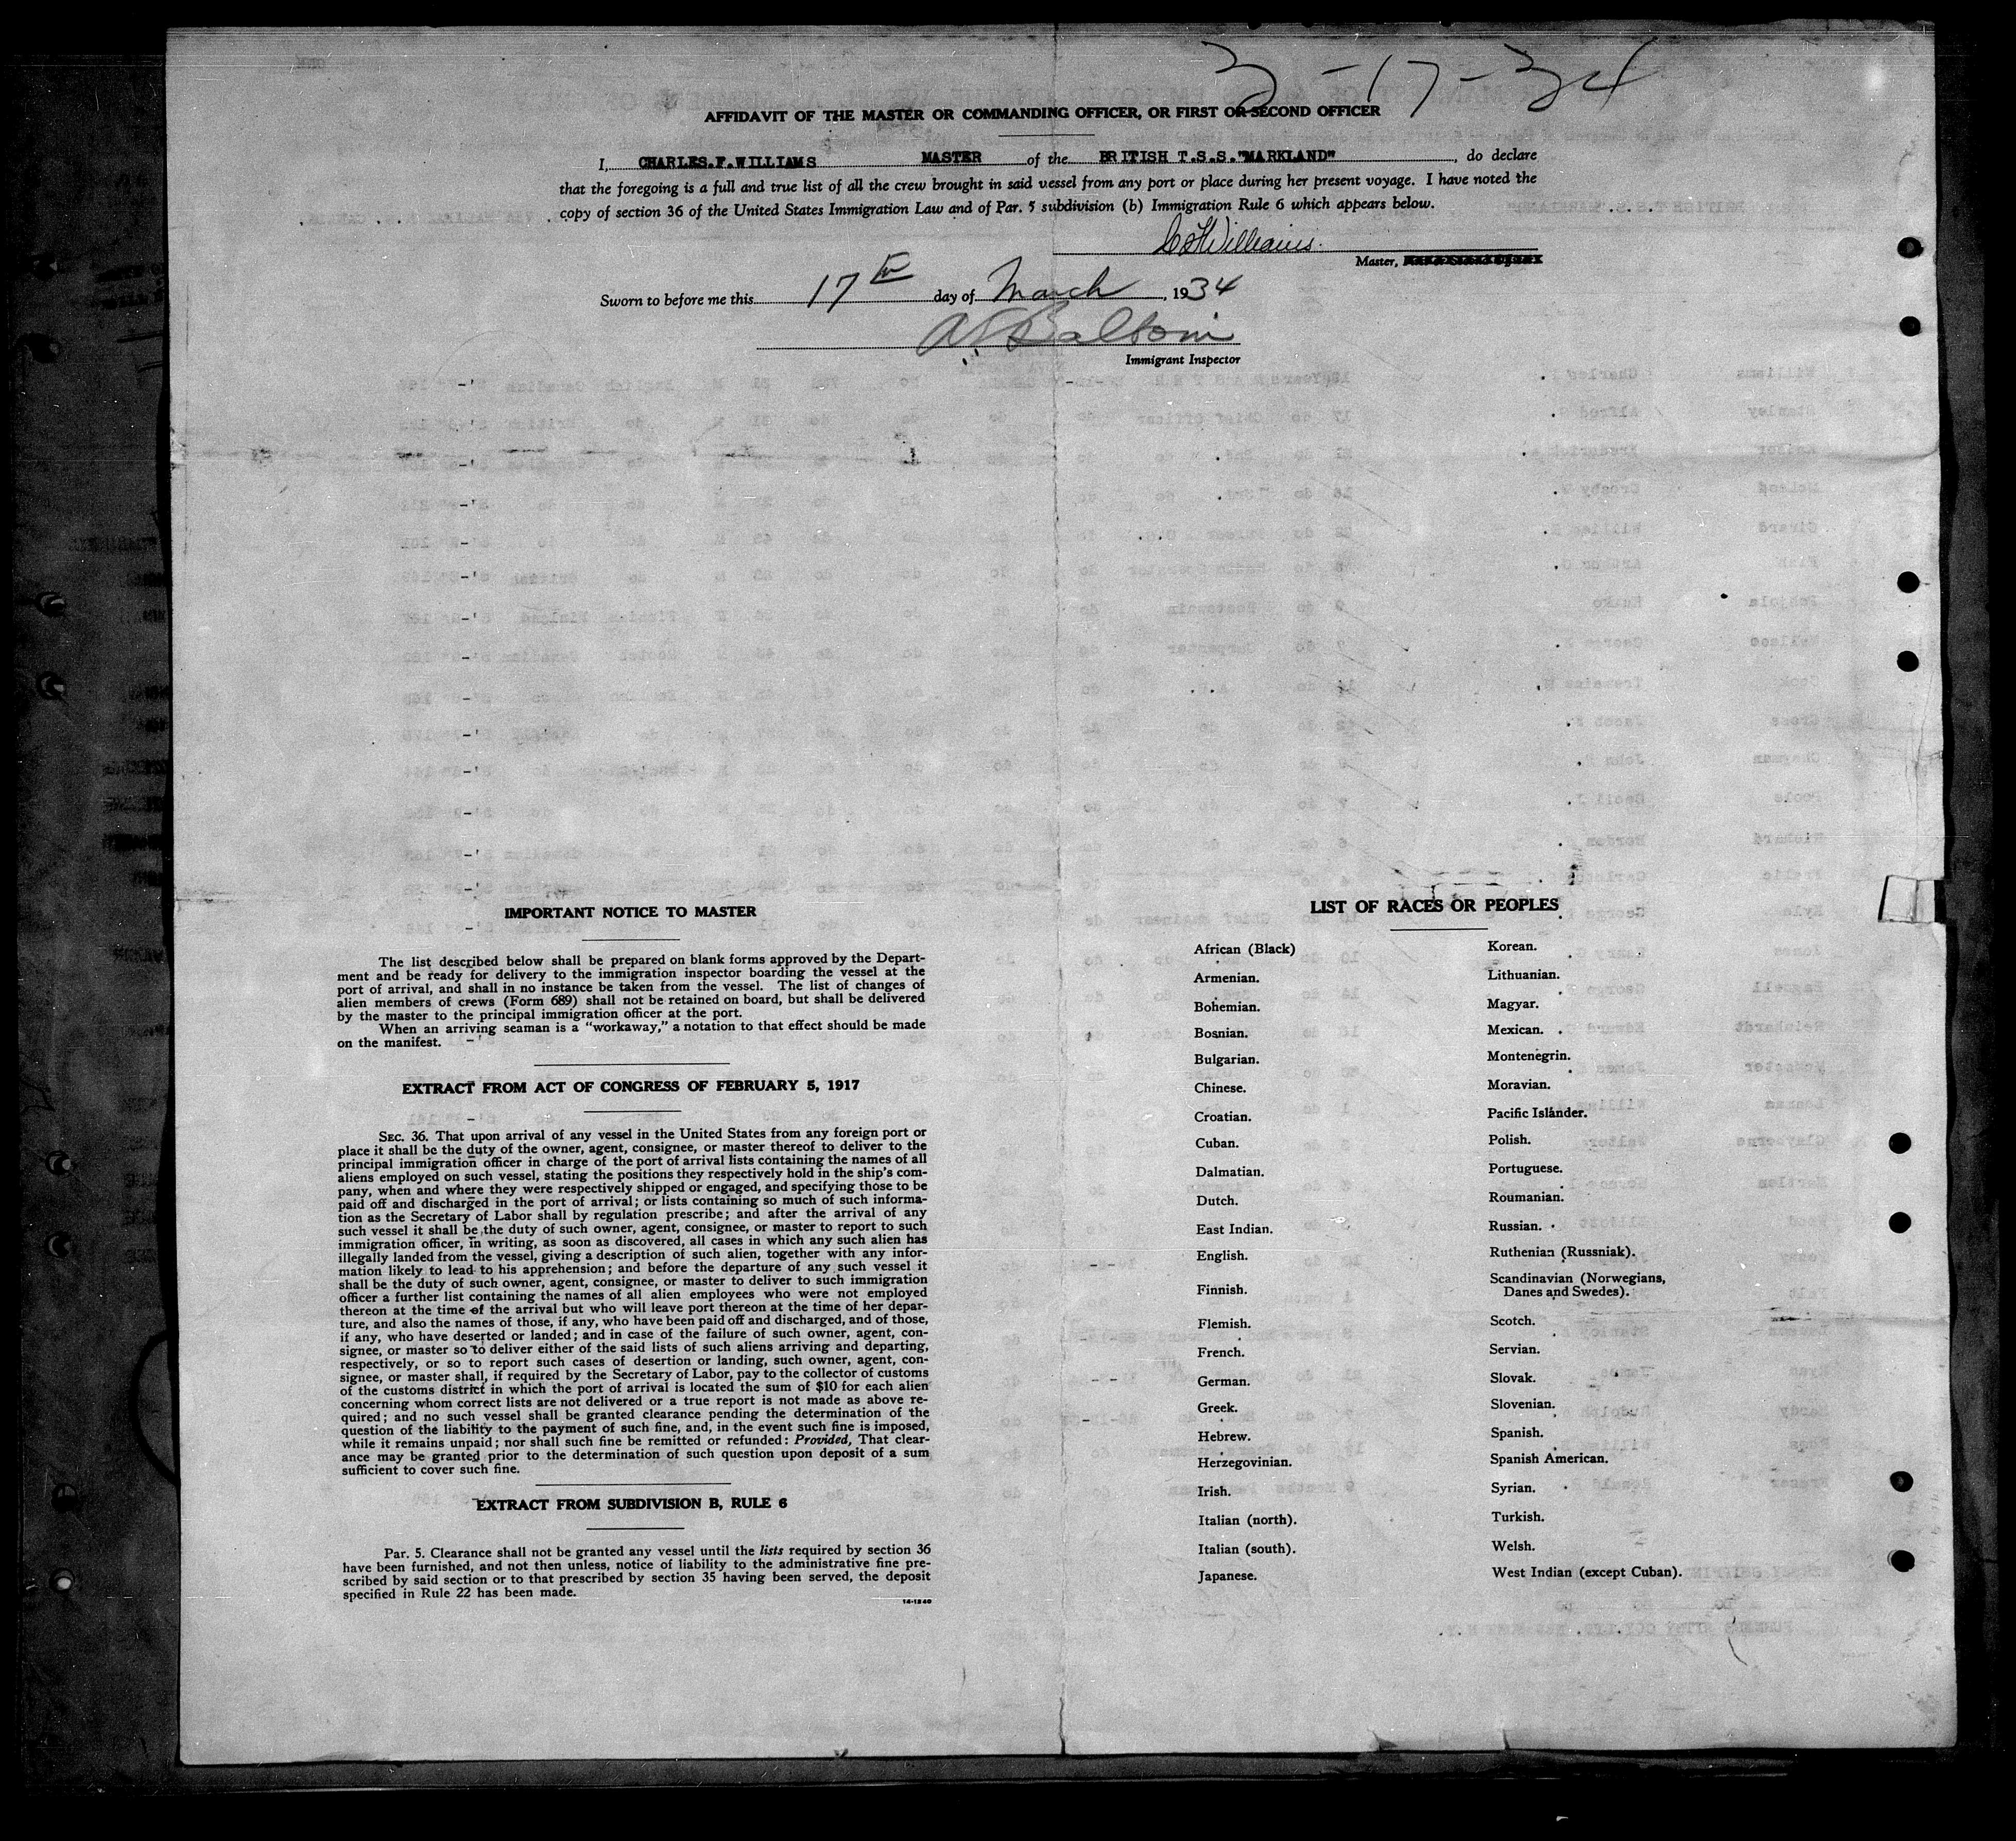 3-17-34
AFFIDAVIT OF THE MASTER OR COMMANDING OFFICER, OR FIRST OR SECOND OFFICER
I, CHARLES.F.WILLIAMS MASTER of the BRITISH T.S.S."MARKLAND", do declare
that the foregoing is a full and true list of all the crew brought in said vessel from any port or place during her present voyage. I have noted the
copy of section 36 of the United States Immigration Law and of Par. 5 subdivision (b) Immigration Rule 6 which appears below.
CFWilliams.
Master,
Sworn to before me this 17th day of March, 1934
Immigrant Inspector
IMPORTANT NOTICE TO MASTER
The list described below shall be prepared on blank forms approved by the Depart-
ment and be ready for delivery to the immigration inspector boarding the vessel at the
port of arrival, and shall in no instance be taken from the vessel. The list of changes of
alien members of crews (Form 689) shall not be retained on board, but shall be delivered
by the master to the principal immigration officer at the port.
When an arriving seaman is a "workaway," a notation to that effect should be made
on the manifest.
EXTRACT FROM ACT OF CONGRESS OF FEBRUARY 5, 1917
SEC. 36. That upon arrival of any vessel in the United States from any foreign port or
place it shall be the duty of the owner, agent, consignee, or master thereof to deliver to the
principal immigration officer in charge of the port of arrival lists containing the names of all
aliens employed on such vessel, stating the positions they respectively hold in the ship's com-
pany, when and where they were respectively shipped or engaged, and specifying those to be
paid off and discharged in the port of arrival; or lists containing so much of such informa-
tion as the Secretary of Labor shall by regulation prescribe; and after the arrival of any
such vessel it shall be the duty of such owner, agent, consignee, or master to report to such
immigration officer, in writing, as soon as discovered, all cases in which any such alien has
illegally landed from the vessel, giving a description of such alien, together with any infor-
mation likely to lead to his apprehension; and before the departure of any such vessel it
shall be the duty of such owner, agent, consignee, or master to deliver to such immigration
officer a further list containing the names of all alien employees who were not employed
thereon at the time of the arrival but who will leave port thereon at the time of her depar-
ture, and also the names of those, if any, who have been paid off and discharged, and of those,
if any, who have deserted or landed; and in case of the failure of such owner, agent, con-
signee, or master so to deliver either of the said lists of such aliens arriving and departing,
respectively, or so to report such cases of desertion or landing, such owner, agent, con-
signee, or master shall, if required by the Secretary of Labor, pay to the collector of customs
of the customs district in which the port of arrival is located the sum of $10 for each alien
concerning whom correct lists are not delivered or a true report is not made as above re-
quired; and no such vessel shall be granted clearance pending the determination of the
question of the liability to the payment of such fine, and, in the event such fine is imposed,
while it remains unpaid; nor shall such fine be remitted or refunded: Provided, That clear-
ance may be granted prior to the determination of such question upon deposit of a sum
sufficient to cover such fine.
EXTRACT FROM SUBDIVISION B, RULE 6
Par. 5. Clearance shall not be granted any vessel until the lists required by section 36
have been furnished, and not then unless, notice of liability to the administrative fine pre-
scribed by said section or to that prescribed by section 35 having been served, the deposit
specified in Rule 22 has been made.
14-1240
LIST OF RACES OR PEOPLES
African (Black)
Armenian.
Bohemian.
Bosnian.
Bulgarian.
Chinese.
Croatian.
Cuban.
Dalmatian.
Dutch.
East Indian.
English.
Finnish.
Flemish.
French.
German.
Greek.
Hebrew.
Herzegovinian.
Irish.
Italian (north).
Italian (south).
Japanese.
Korean.
Lithuanian.
Magyar.
Mexican.
Montenegrin.
Moravian.
Pacific Islander.
Polish.
Portuguese.
Roumanian.
Russian.
Ruthenian (Russniak).
Scandinavian (Norwegians,
Danes and Swedes).
Scotch.
Servian.
Slovak.
Slovenian.
Spanish.
Spanish American.
Syrian.
Turkish.
Welsh.
West Indian (except Cuban).